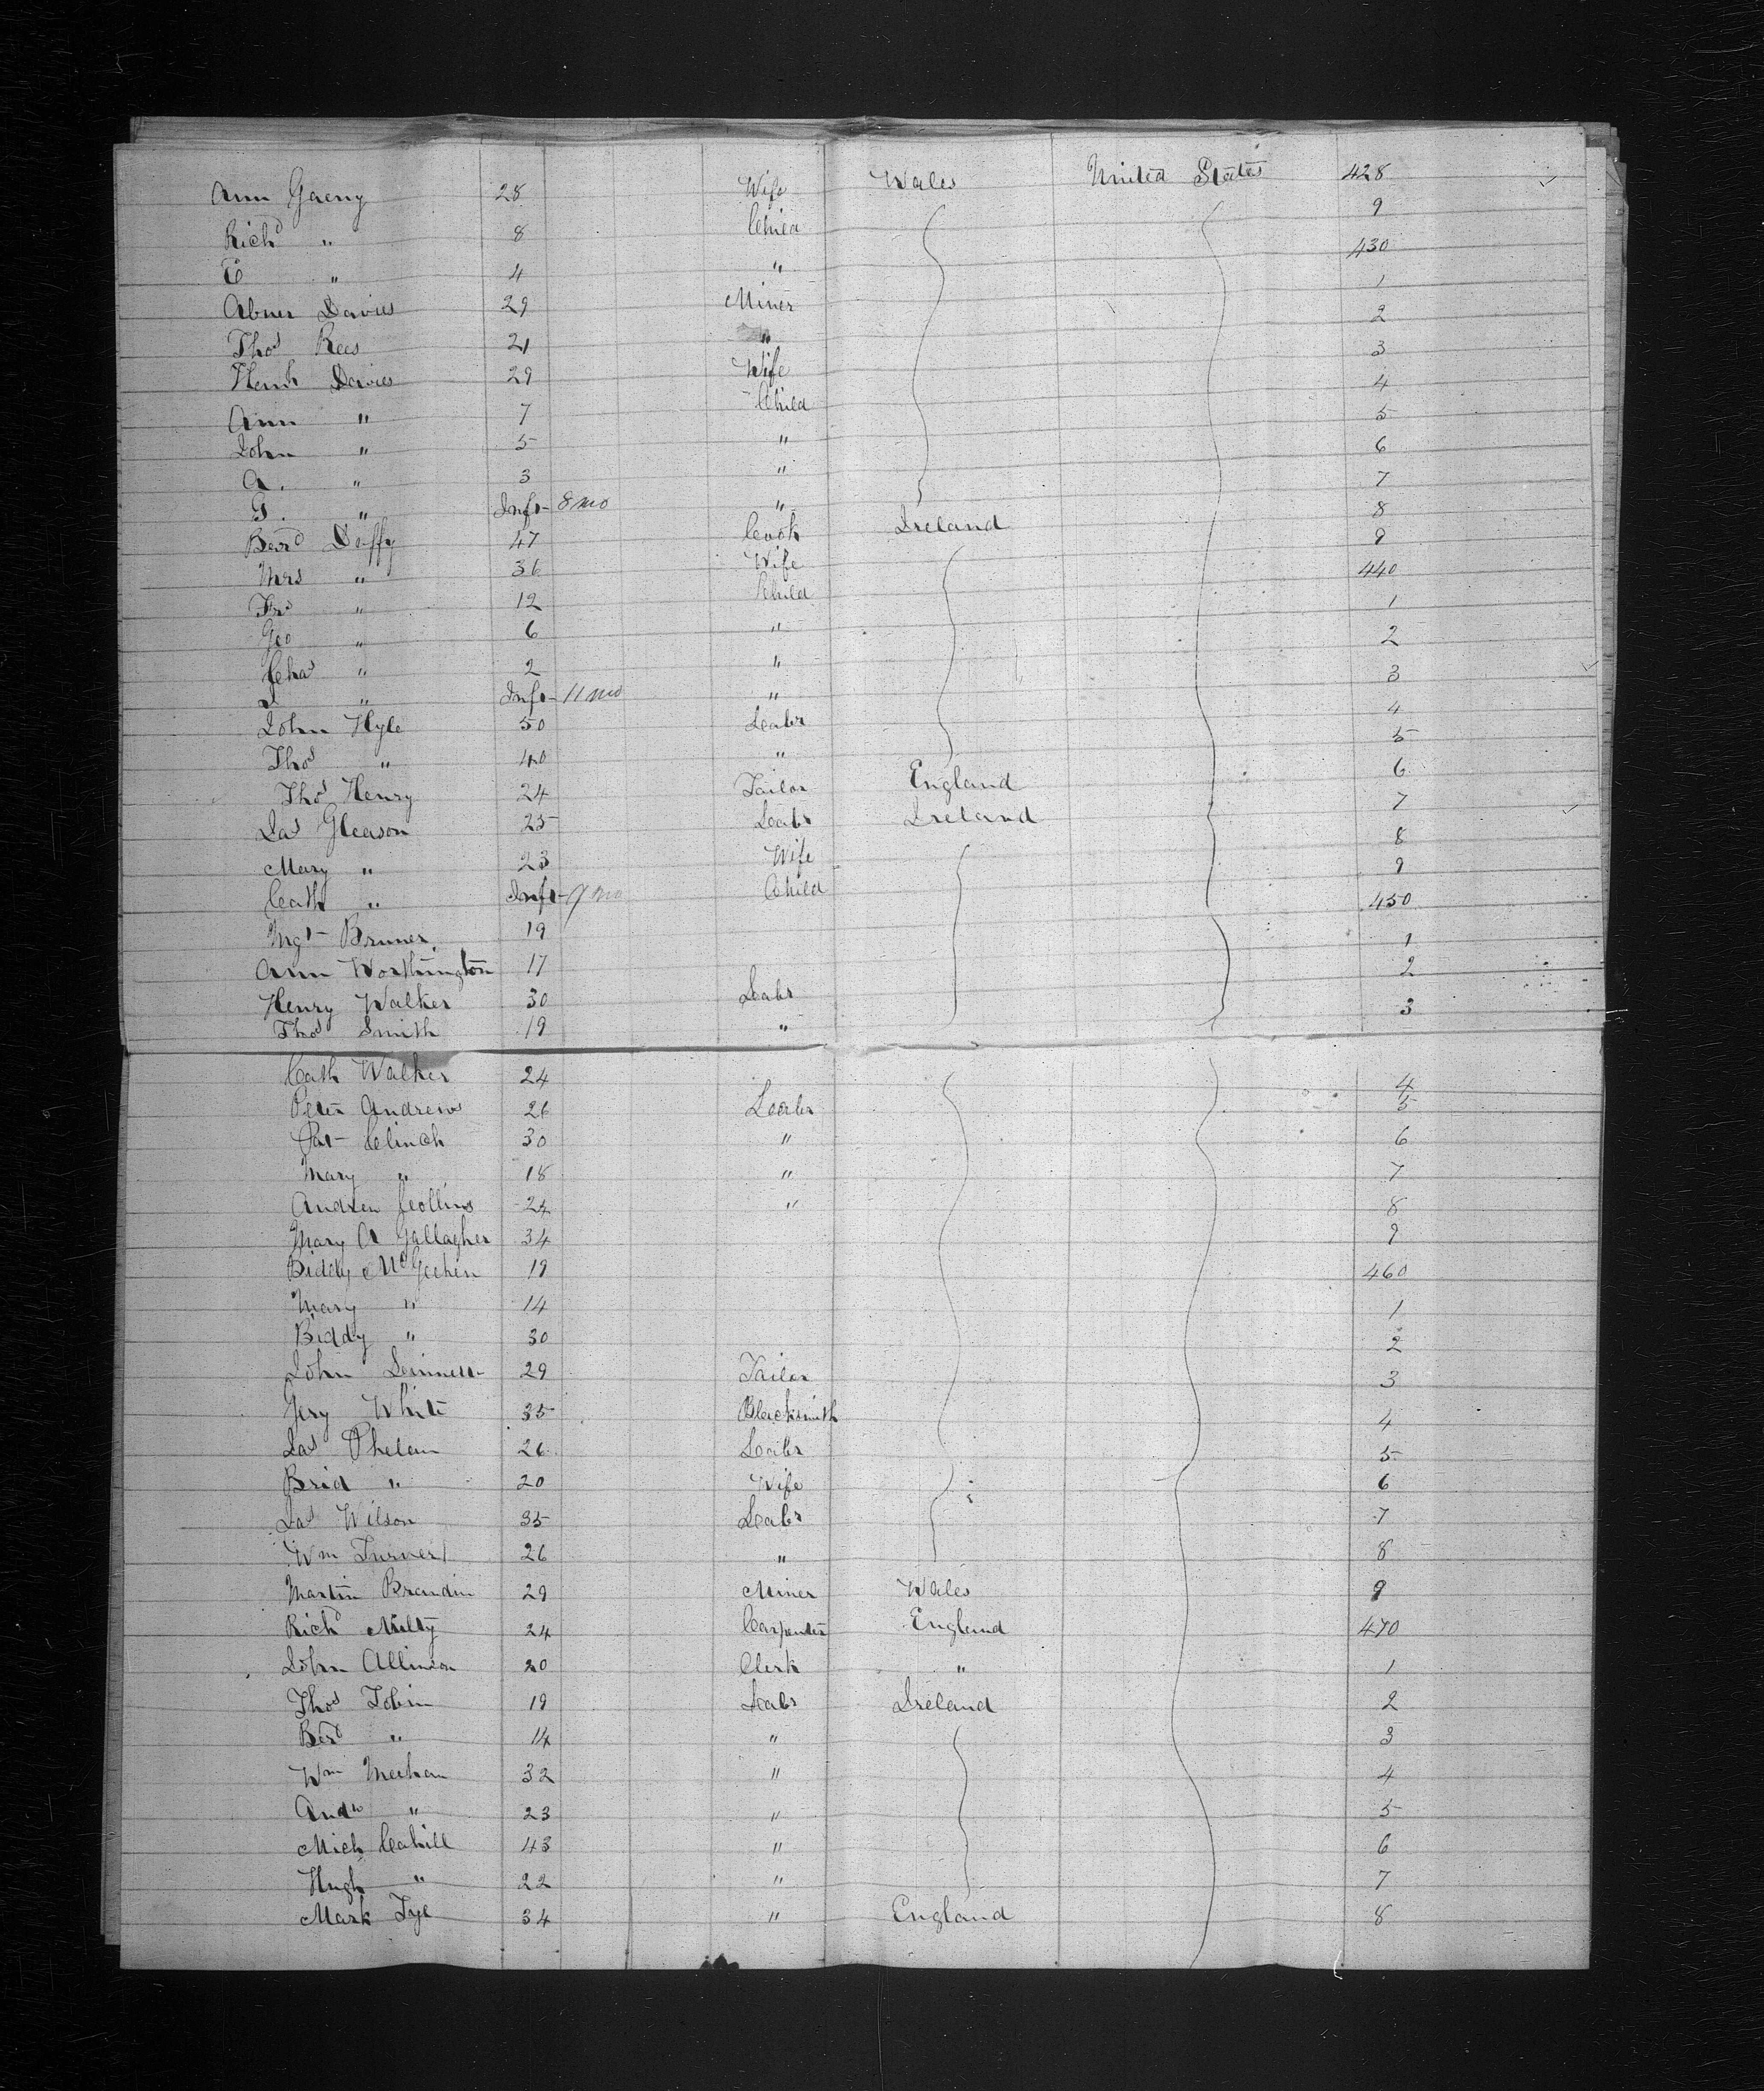 Ann Gaeny 28 Wife Wales United States 428
Richd " 8 Child 9
E " 4 " 430
Abner Davies 29 Miner 1
Thos Rees 21 " 2
Henh Davies 29 Wife 3
Ann " 7 Child 4
John " 5 " 5
A. " 3 " 6
G. " Inft- 8 mo " 7
Berd Duffy 47 Cook Ireland 8
Mrs " 36 Wife 9
Frs " 12 Child 440
Geo " 6 " 1
Chas " 2 " 2
J " Inft- 11 mo " 3
John Hyle 50 Leabr 4
Thos " 40 " 5
Thos Henry 24 Tailor England 6
Jas Gleason 25 Leabr Ireland 7
Mary " 23 Wife 8
Cath " Inft- 9 mo Child 9
Mgt Bruner 19 450
Ann Worthington 17 1
Henry Walker 30 Leabr 2
Thos Smith 19 " 3
Cath Walker 24 4
Peter Andrews 26 Leabr 5
Pat Clinch 30 " 6
Mary " 18 " 7
Andrew Collins 24 " 8
Mary A Gallagher 34 9
Biddy McGeehin 19 460
Mary " 14 1
Biddy " 30 2
John 29 Tailor 3
Jery White 35 Blacksmith 4
Jas Phelan 26 Leabr 5
Brid " 20 Wife 6
Jas Wilson 35 Leabr 7
Wm Turner 26 " 8
Martin Brandin 29 Miner Wales 9
Richd Milty 24 Carpenter England 470
John Allinson 20 Clerk " 1
Thos Tobin 19 Leabr Ireland 2
Berd " 14 " 3
Wm Meehan 32 " 4
Andw " 23 " 5
Mich Cahill 43 " 6
Hugh " 22 " 7
Mark Tye 34 " England 8